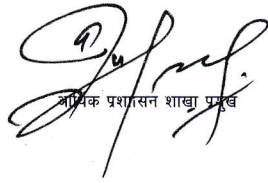 आर्थिक प्रशासन शाखा प्रमुख